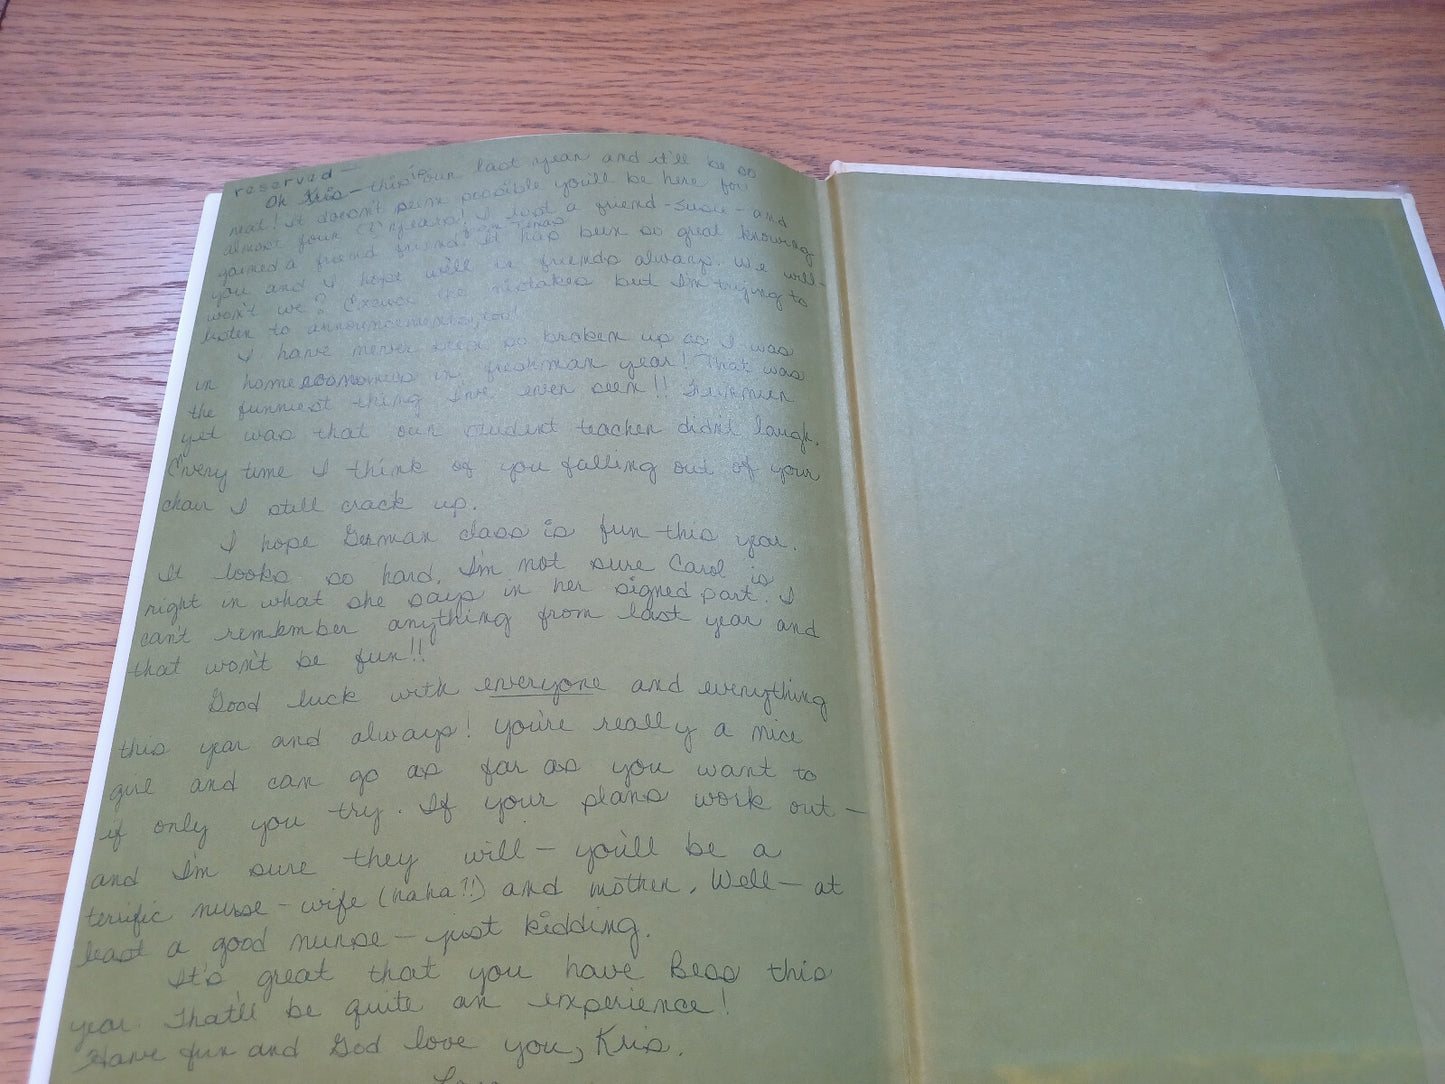 reserved—
Oh Kris — this is our last year and it'll be so
neat! It doesn't seem possible you'll be here for
almost four (3) years! I lost a friend - Susie - and
gained a friend
you and I hope we'll be friends always. We will -
won't we? Excuse the mistakes but I'm trying to
listen to announcements, too!
I have never seen so broken up as I was
in home economics in freshman year! That was
the funniest thing I've ever seen!! Funnier
yet was that our student teacher didn't laugh.
Every time I think of you falling out of your
chair I still crack up.
I hope German class is fun this year.
It looks so hard. I'm not sure Carol is
right in what she says in her signed part. I
can't remember anything from last year and
that won't be fun!!
Good luck with everyone and everything
this year and always! You're really a nice
girl and can go as far as you want to
if only you try. If your plans work out —
and I'm sure they will — you'll be a
terrific nurse - wife (haha!!) and mother. Well — at
least a good nurse — just kidding.
It's great that you have Bess this
year. That'll be quite an experience!
Have fun and God love you, Kris.